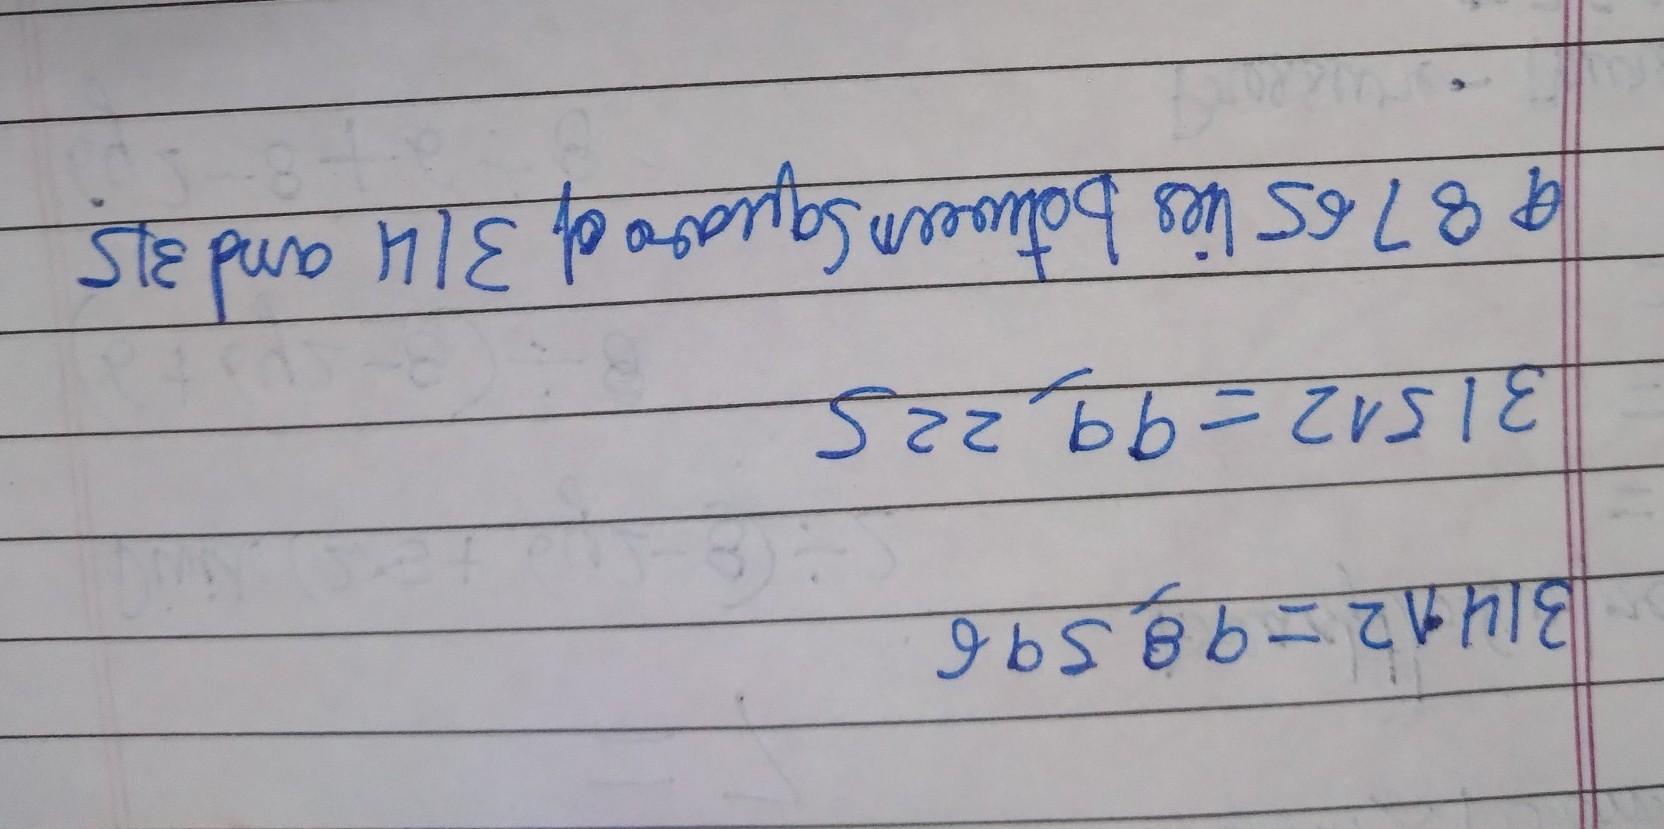 314^2 = 98,596
315^2 = 99,225
98765 lies between square of 314 and 315.